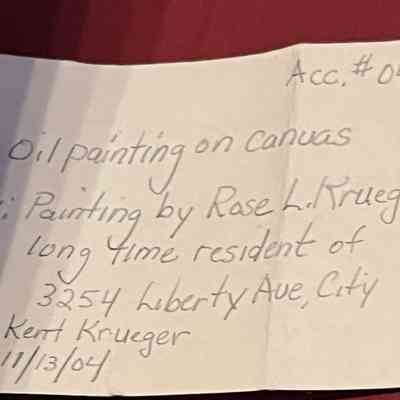 Acc. # 0
Oil painting on canvas
: Painting by Rose L. Krueg
long time resident of
3254 Liberty Ave, City
Kent Krueger
11/13/04